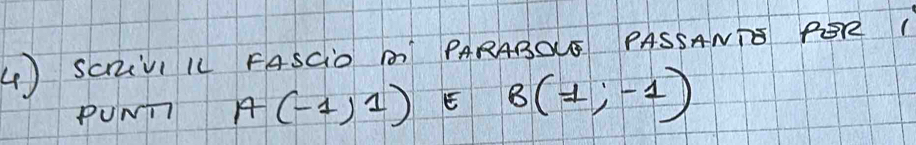 4) SCRIVI IL FASCIO DI PARABOLE PASSANTE PER I
PUNTI A(-1; 1) E B(1; -1)